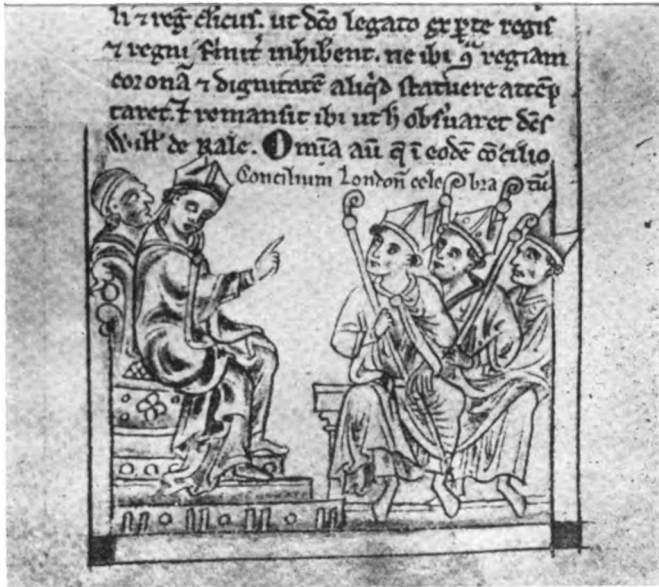 li ⁊ reg̃ cl̃icus. ut dc̃o legato ex ꝑte regis
⁊ regni inhibent. ne ibi ꝯ̃ regiam
coronã ⁊ dignitatẽ aliq̓d statuere attẽp
taret. ⁊ remansit ibi ut h̓ obs̓uaret
Will̓ de Rale. Om̃ia au᷑ q̃ ĩ eodẽ cõcilio
Concilium Londoñ celebratũ